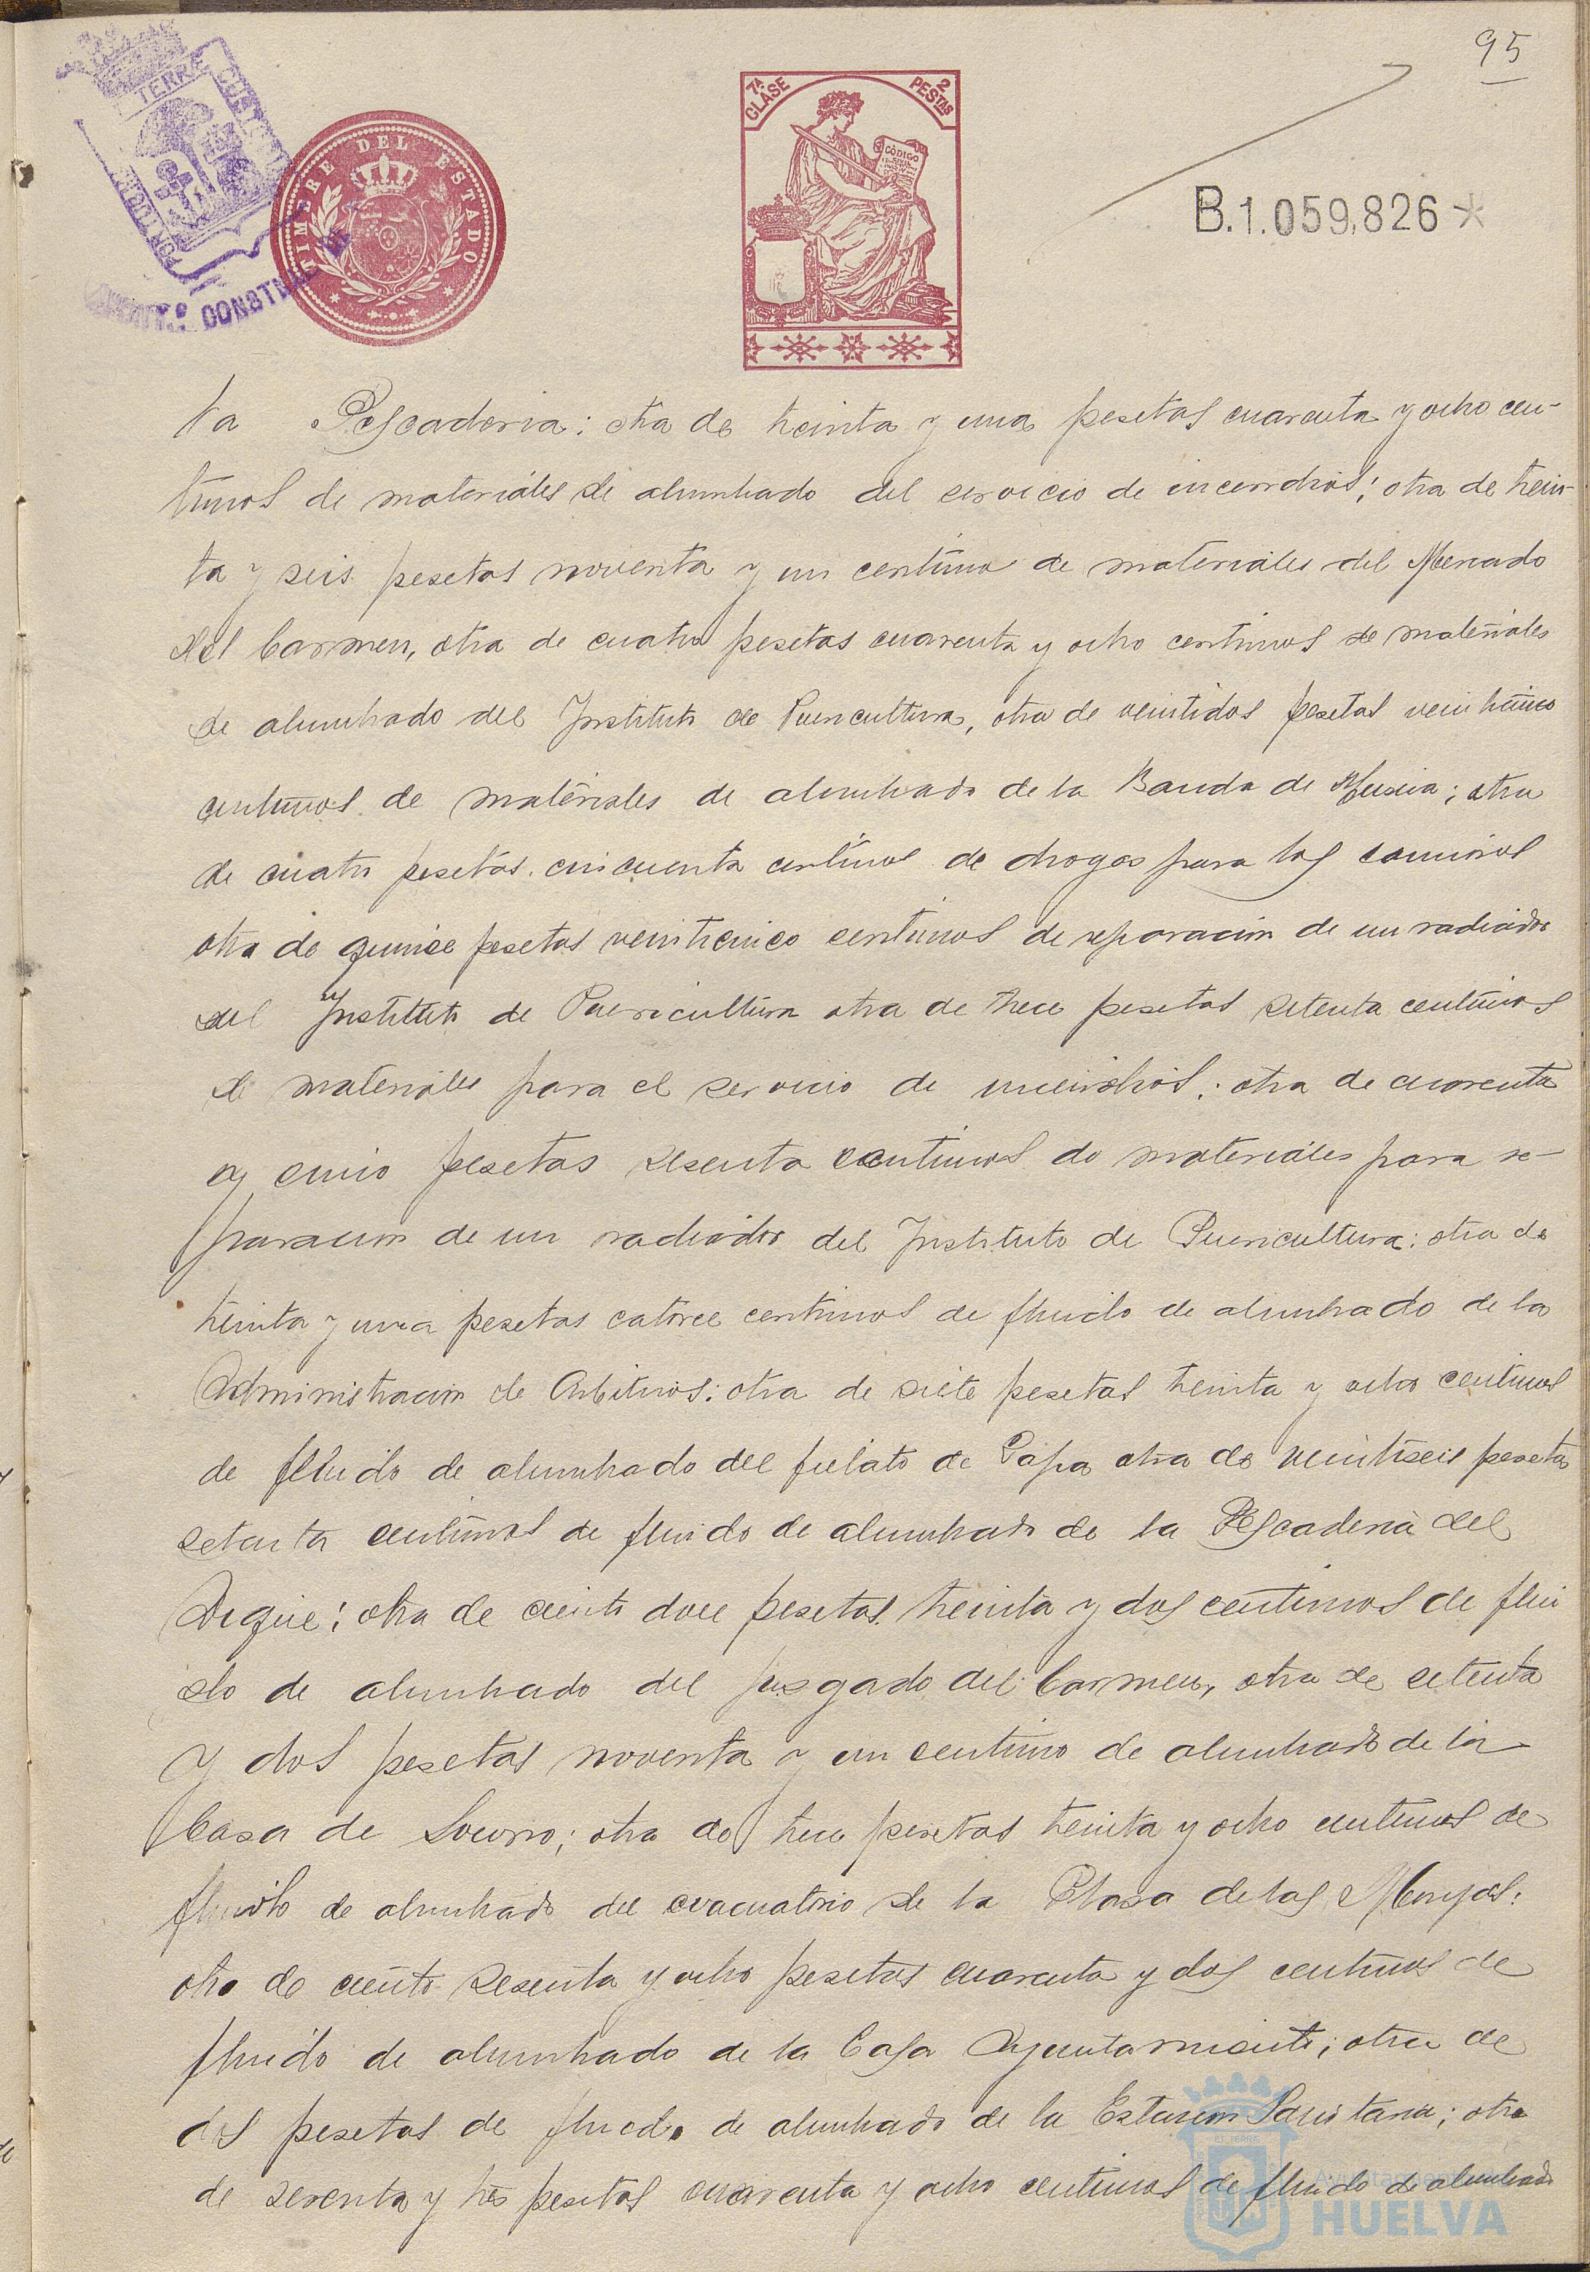 95
7ª CLASE
2 PESTAS
CÓDIGO
TIMBRE DEL ESTADO
TERRÆ
CONSTNAL
B.1.059,826*
la Pescaderia; otra de treinta y una pesetas cuarenta y ocho cen-
timos de materiales de alumbrado del servicio de incendios; otra de trein-
ta y seis pesetas noventa y un centimo de materiales del Mercado
del Carmen, otra de cuatro pesetas cuarenta y ocho centimos de materiales
de alumbrado del Instituto de Puericultura, otra de veintidos pesetas veinticinco
centimos de materiales de alumbrado de la Banda de Musica; otra
de cuatro pesetas cincuenta centimos de drogas para los caminos
otra de quince pesetas veinticinco centimos de reparacion de un radiador
del Instituto de Puericultura otra de trece pesetas setenta centimos
de materiales para el servicio de incendios; otra de cuarenta
y cinco pesetas sesenta centimos de materiales para re-
paracion de un radiador del Instituto de Puericultura; otra de
treinta y una pesetas catorce centimos de fluido de alumbrado de la
Administracion de Arbitrios; otra de siete pesetas treinta y ocho centimos
de fluido de alumbrado del fielato de otra de veintiseis pesetas
setenta centimos de fluido de alumbrado de la Pescaderia del
Dique; otra de ciento doce pesetas treinta y dos centimos de flui
do de alumbrado del jusgado del Carmen, otra de setenta
y dos pesetas noventa y un centimo de alumbrado de la
Casa de Socorro; otra de trece pesetas treinta y ocho centimos de
fluido de alumbrado del evacuatorio de la Plasa de las Monjas;
otra de ciento sesenta y ocho pesetas cuarenta y dos centimos de
fluido de alumbrado de la Casa Ayuntamiento; otra de
dos pesetas de fluido de alumbrado de la Estacion Sanitaria; otra
de sesenta y tres pesetas cuarenta y ocho centimos de fluido de alumbrado
Ayuntamiento
HUELVA